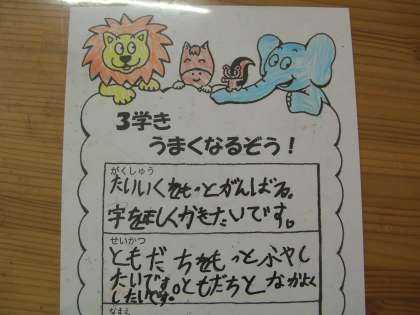 3学き
うまくなるぞう！
がくしゅう
たいいくをもっとがんばる。
字を正しくかきたいです。
せいかつ
ともだちをもっとふやし
たいです。ともだちとなかよく
したいです。
なまえ